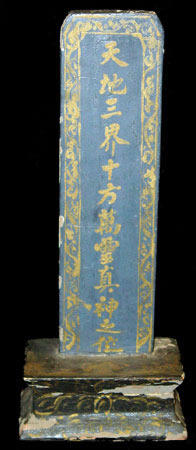 天地三界十方萬靈真神之位